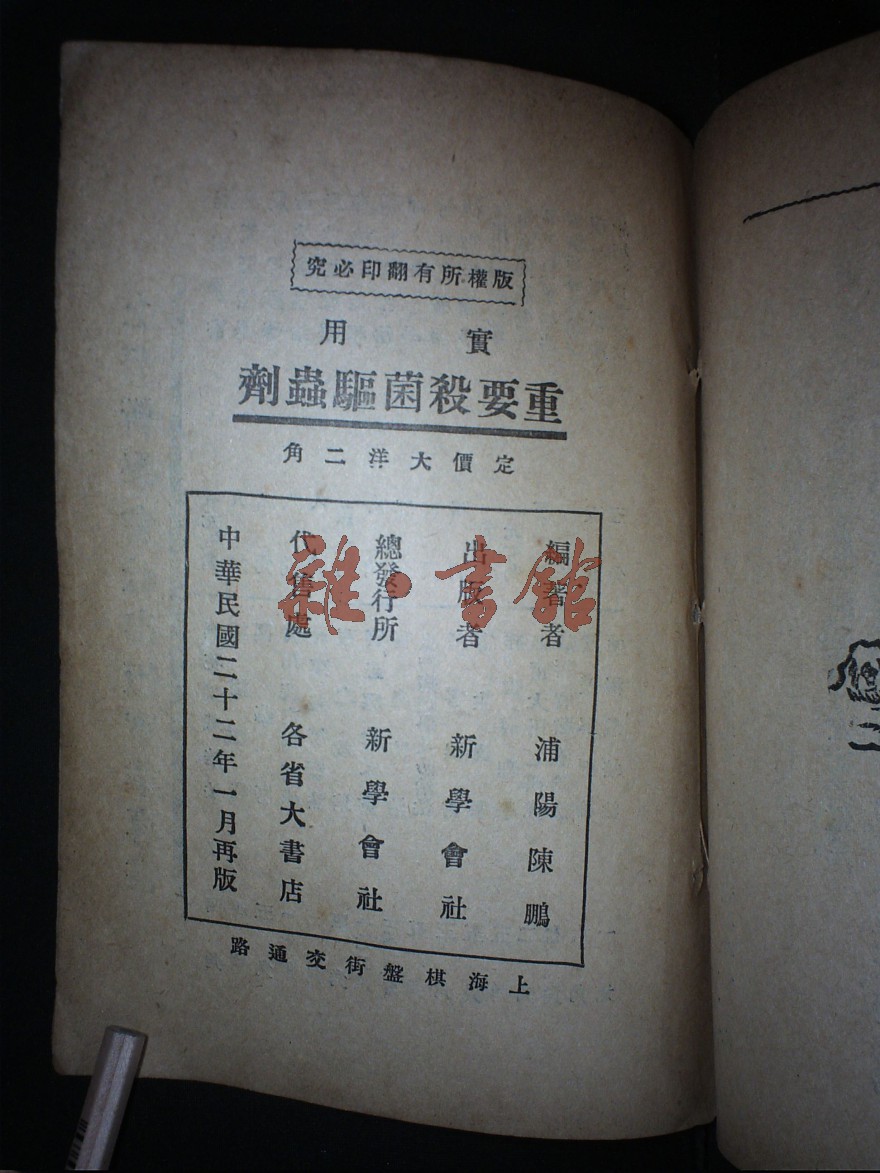 版權所有翻印必究
實用
重要殺菌驅蟲劑
定價大洋二角
編著者 浦陽陳鵬
出版者 新學會社
總發行所 新學會社
代售處 各省大書店
中華民國二十二年一月再版
上海棋盤街交通路
雜·書館
二